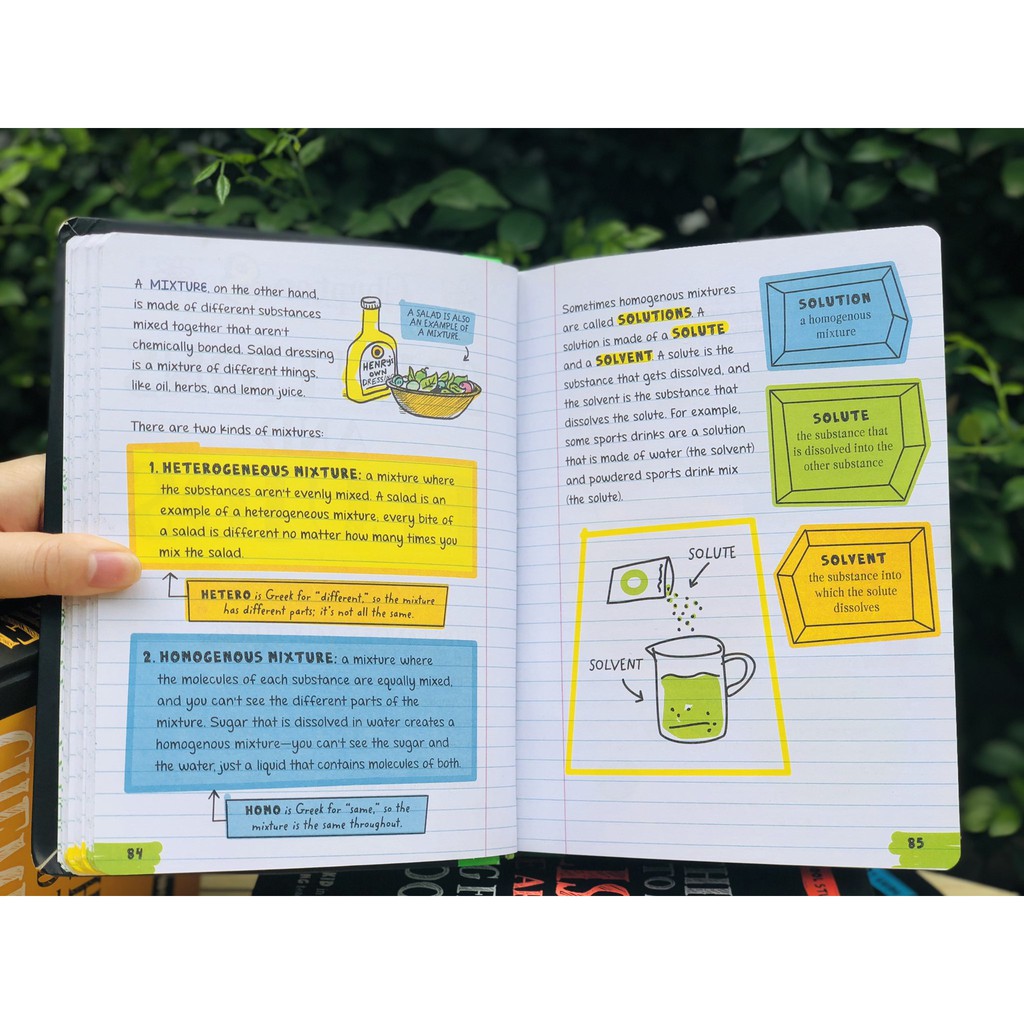 A MIXTURE, on the other hand,
is made of different substances
mixed together that aren't
chemically bonded. Salad dressing
is a mixture of different things,
like oil, herbs, and lemon juice.
HENRy's
OWN
A SALAD IS ALSO
AN EXAMPLE OF
A MIXTURE.
There are two kinds of mixtures:
1. HETEROGENEOUS MIXTURE: a mixture where
the substances aren't evenly mixed. A salad is an
example of a heterogeneous mixture, every bite of
a salad is different no matter how many times you
mix the salad.
HETERO is Greek for "different," so the mixture
has different parts; it's not all the same.
2. HOMOGENOUS MIXTURE: a mixture where
the molecules of each substance are equally mixed,
and you can't see the different parts of the
mixture. Sugar that is dissolved in water creates a
homogenous mixture—you can't see the sugar and
the water, just a liquid that contains molecules of both.
HOMO is Greek for "same," so the
mixture is the same throughout.
84
Sometimes homogenous mixtures
are called SOLUTIONS. A
solution is made of a SOLUTE
and a SOLVENT. A solute is the
substance that gets dissolved, and
the solvent is the substance that
dissolves the solute. For example,
some sports drinks are a solution
that is made of water (the solvent)
and powdered sports drink mix
(the solute).
SOLUTION
a homogenous
mixture
SOLUTE
the substance that
is dissolved into the
other substance
SOLVENT
the substance into
which the solute
dissolves
SOLUTE
SOLVENT
85